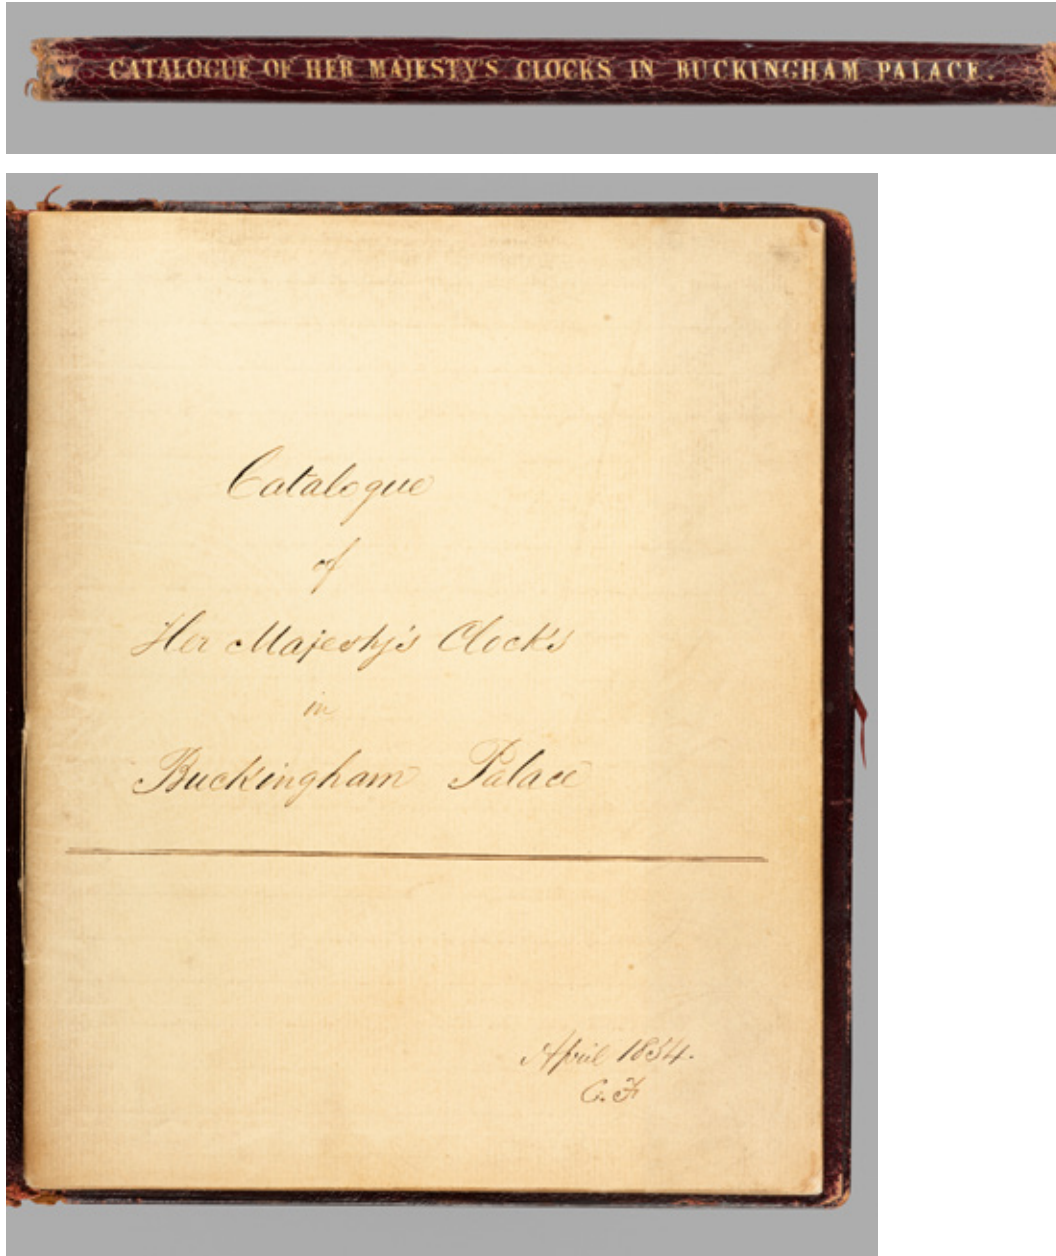 CATALOGUE OF HER MAJESTY'S CLOCKS IN BUCKINGHAM PALACE.
Catalogue
of
Her Majesty's Clocks
in
Buckingham Palace
April 1854.
C. F